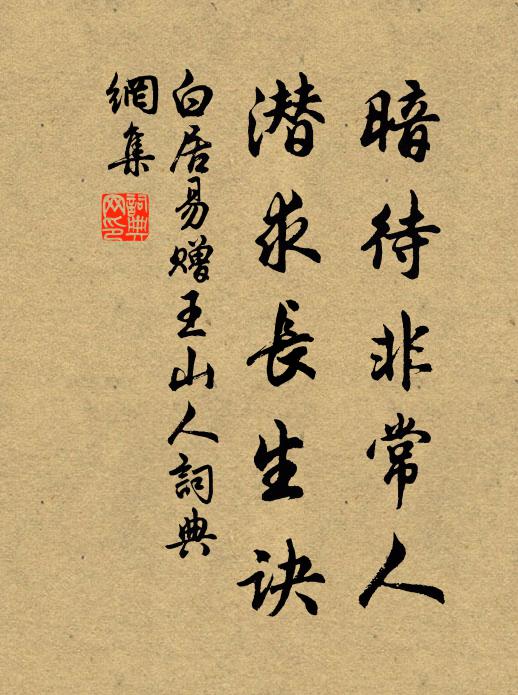 暗待非常人
潜求長生訣
白居易贈王山人詞典
網集
詞典
网印